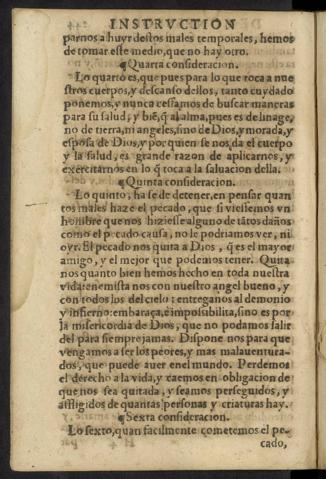 INSTRVCTION
parnos a huyr destos males temporales, hemos
de tomar este medio, que no hay otro.
¶Quarta consideracion.
Lo quarto es, que pues para lo que toca a nue
stros cuerpos, y descanso dellos, tanto cuydado
ponemos, y nunca cessamos de buscar maneras
para su salud, y biē, q̄ al alma, pues es de linage,
no de tierra, ni angeles, sino de Dios, y morada, y
esposa de Dios, y por quien se nos da el cuerpo
y la salud, es grande razon de aplicarnos, y
exercitarnos en lo q̄ toca a la saluacion della.
¶Quinta consideracion.
Lo quinto, ha se de detener, en pensar quan
tos males haze el pecado, que si viessemos vn
hombre que nos hiziesse alguno de tātos daños
como el pecado causa, no le podriamos ver, ni
oyr. El pecado nos quita a Dios, q̄ es el mayor
amigo, y el mejor que podemos tener. Quita
nos quanto bien hemos hecho en toda nuestra
vida: enemista nos con nuestro angel bueno, y
con todos los del cielo: entreganos al demonio
y infierno: embaraça, e impossibilita, sino es por
la misericordia de Dios, que no podamos salir
del para siempre jamas. Dispone nos para que
vengamos a ser los peores, y mas malauentura-
dos, que puede auer en el mundo. Perdemos
el derecho a la vida, y caemos en obligacion de
que nos sea quitada, y seamos perseguidos, y
affligidos de quantas personas y criaturas hay.
¶Sexta consideracion.
Lo sexto, quan facilmente cometemos el pe-
cado,